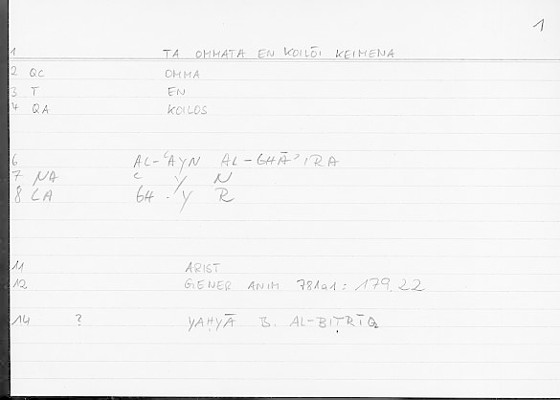 1
1 TA OMMATA EN KOILŌI KEIMENA
2 QC OMMA
3 T EN
4 QA KOILOS
6 AL-ʿAYN AL-GHĀʾIRA
7 NA ʿ Y N
8 LA GH - Y R
11 ARIST
12 GENER ANIM 781a1 : 179.22
14 ? YAḤYĀ B. AL-BIṬRĪQ